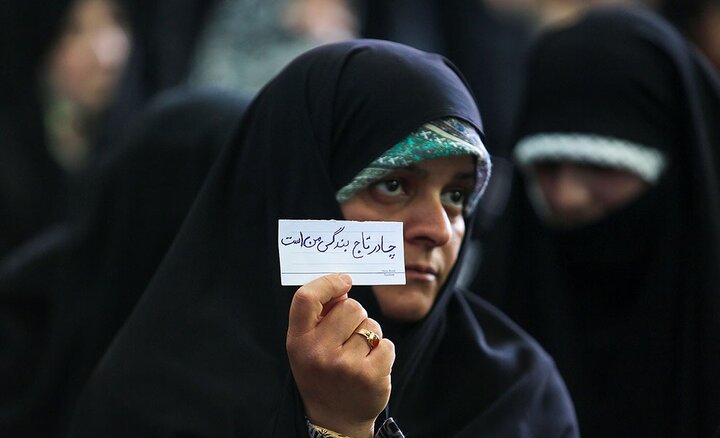 چادر تاج بندگی من است